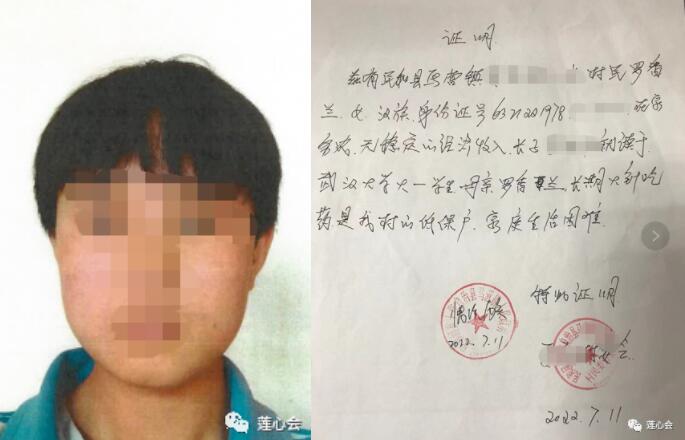 证明
兹有民和县马营镇 村民罗香
兰,女,汉族,身份证号6321221978 在家
务农,无稳定的经济收入,长子 就读于
武汉大学大一学生,母亲罗香兰,长期大剂吃
药是我村的低保户,家庭生活困难.
特此证明
2022.7.11
2022.7.11
莲心会
莲心会